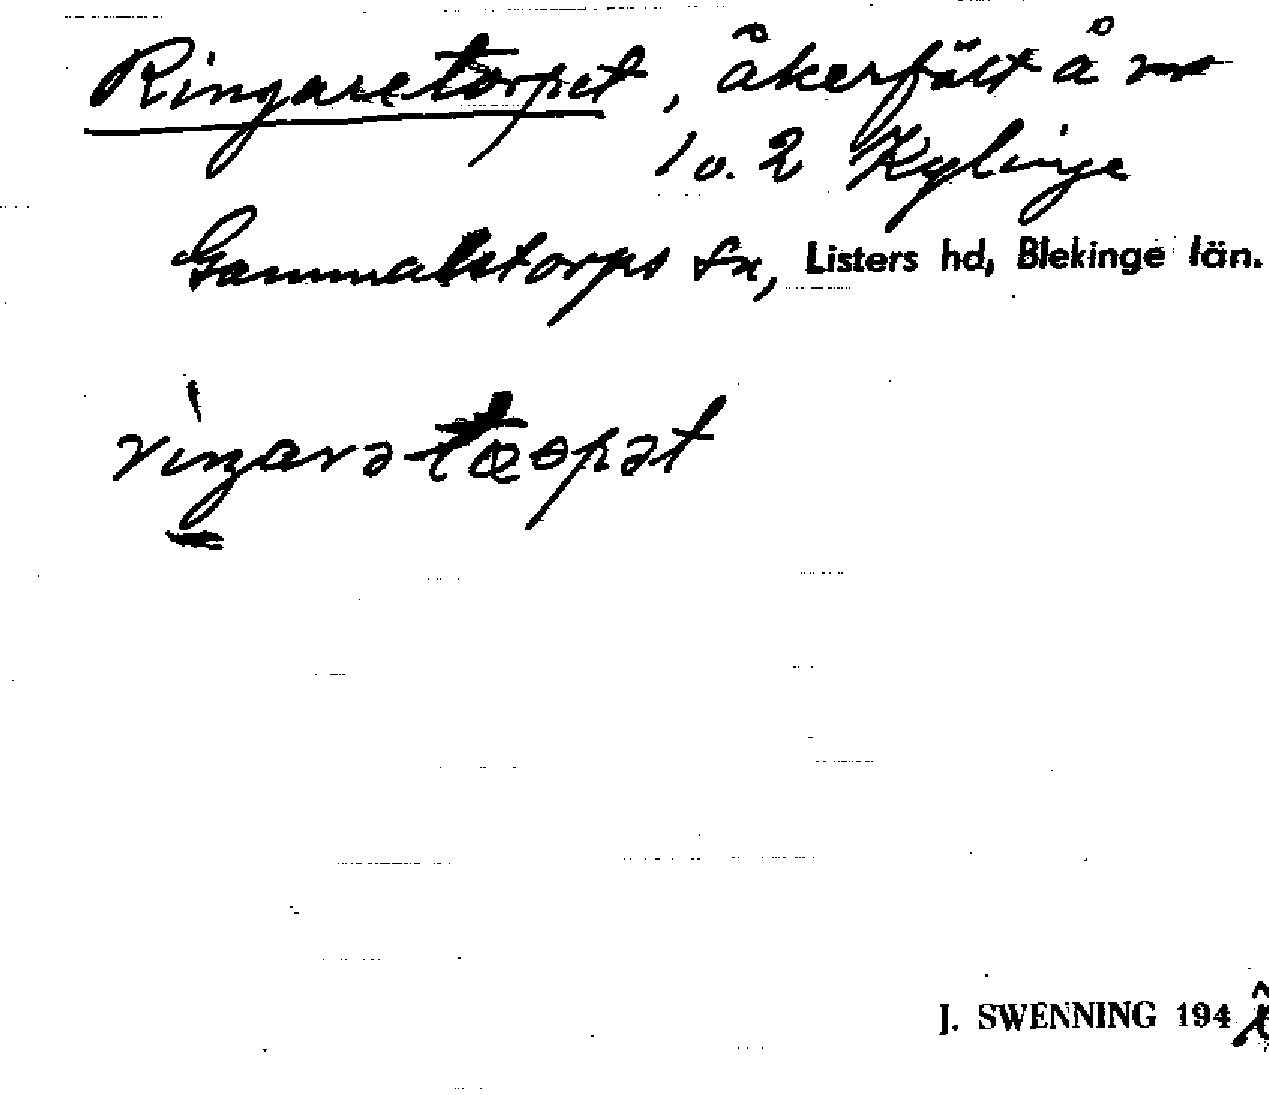 Ringaretorpet, åkerfält å nr
1 o. 2 Kylinge
Gammalstorps sn, Listers hd, Blekinge län.
J. SWENNING 194